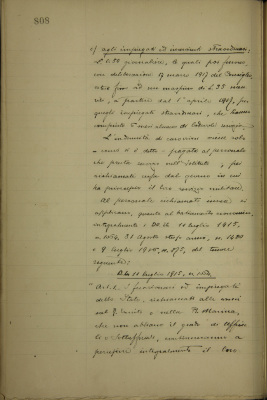 808
c) agli impiegati ed inservienti straordinari,
L. 0.50 giornaliere, le quali poi furono
con deliberazione 17 marzo 1917 del Consiglio
ad un massimo di L. 0.95
a partire dal 1° aprile 1917, per
quegli impiegati straordinari, che hanno
compiuto
L'indennità di caroviveri
è detto - pagata al personale
che presta servizio nell'Istituto, pei
richiamati cessa dal giorno in cui
ha principio il loro servizio militare.
Al personale richiamato
si applicano, quanto al trattamento economico,
integralmente i DD. LL. 11 luglio 1915,
n. 1064, 31 Agosto stesso anno, n. 1420
e 8 luglio 1916, n. 875, del tenore
seguente:
D. L. 11 luglio 1915, n. 1064
"Art. 1. I funzionari ed impiegati
dello Stato, richiamati alle armi
nel R. Esercito o nella R. Marina,
che non abbiano il grado di ufficia-
le o sottufficiale, continueranno a
percepire integralmente il loro